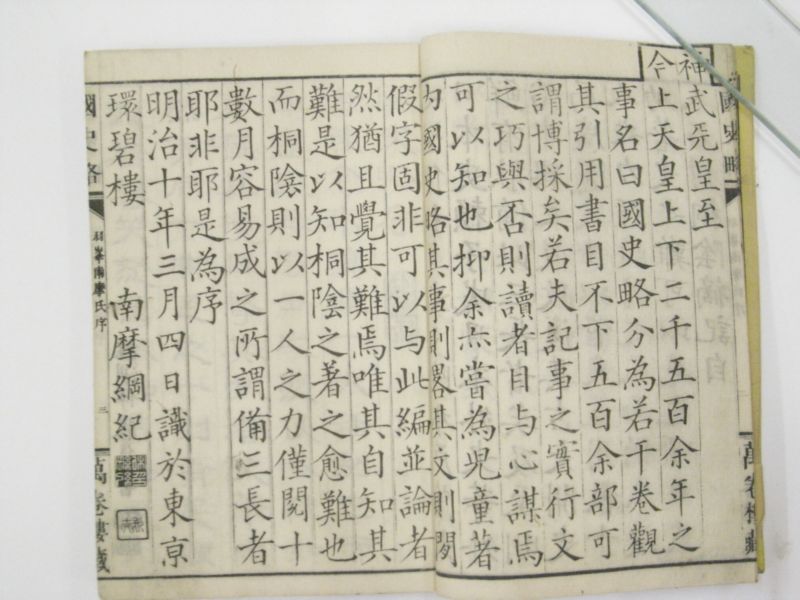 國史略
神武天皇至
今上天皇上下二千五百余年之
事名曰國史略分為若干卷觀
其引用書目不下五百余部可
謂博採矣若夫記事之實行文
之巧與否則讀者目与心謀焉
可以知也抑余亦嘗為児童著
内國史略其事則畧其文則閒
假字固非可以与此編並論者
然猶且覺其難焉唯其自知其
難是以知桐陰之著之愈難也
而桐陰則以一人之力僅閲十
數月容易成之所謂備三長者
耶非耶是為序
明治十年三月四日識於東京
環碧樓 南摩綱紀
國史略
羽峯南摩氏序
三
萬卷樓藏
萬卷樓藏